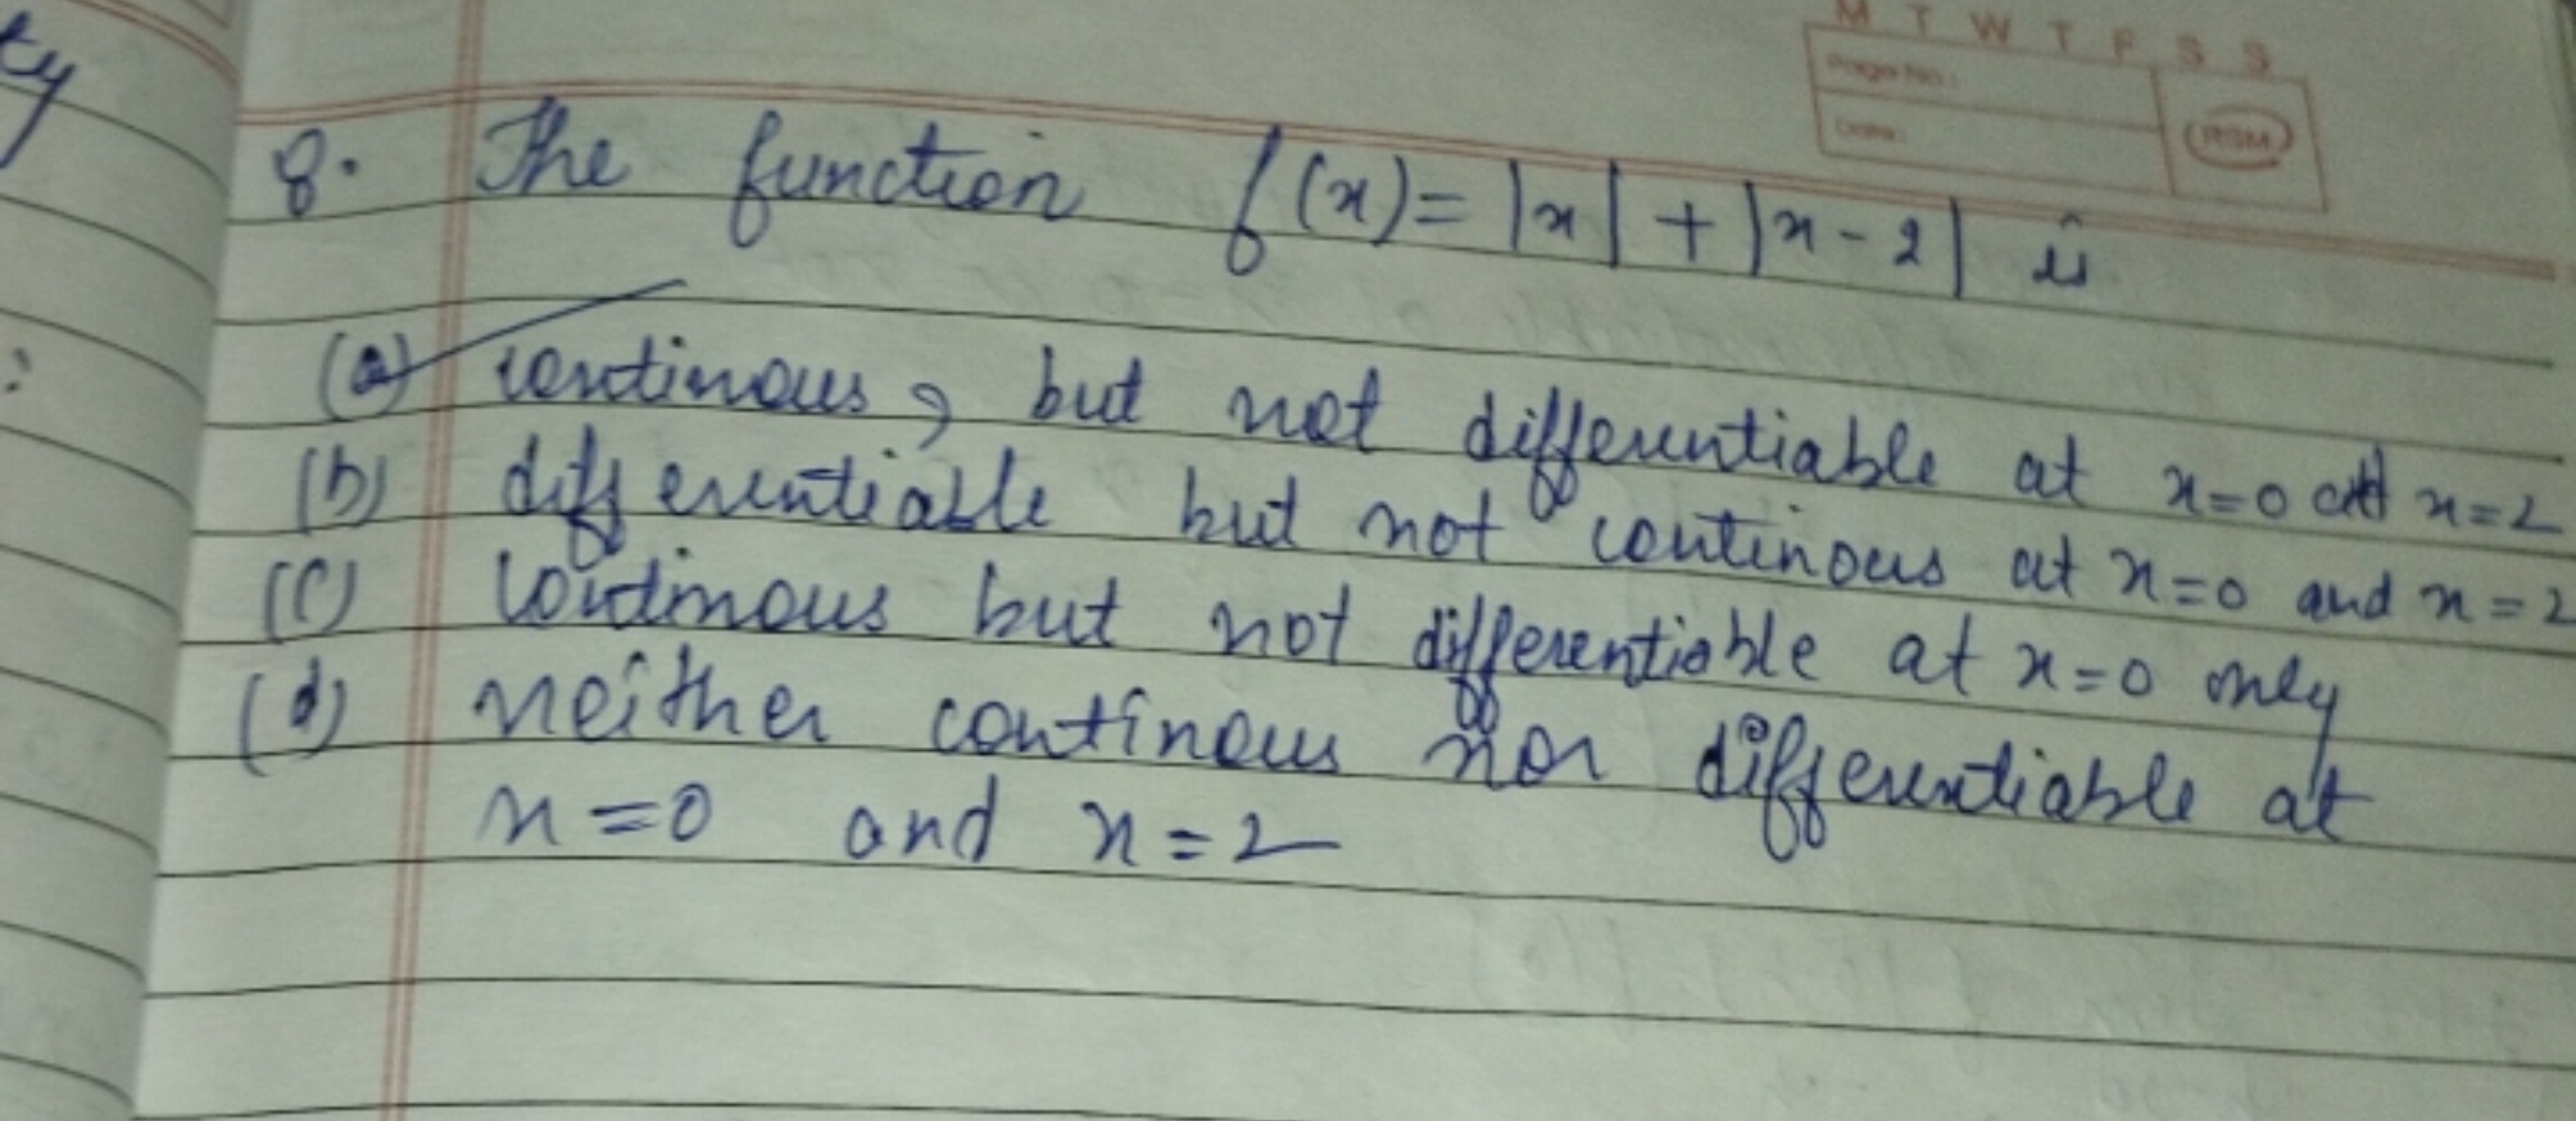 ty
M T W T F S S
Page No.:
Date:
RSM
8. The function f(x) = |x| + |x - 2| is
(a) continous, but not differentiable at x=0 and x=2
(b) differentiable but not continous at x=0 and x=2
(c) continous but not differentiable at x=0 only
(d) neither continous nor differentiable at
x=0 and x=2